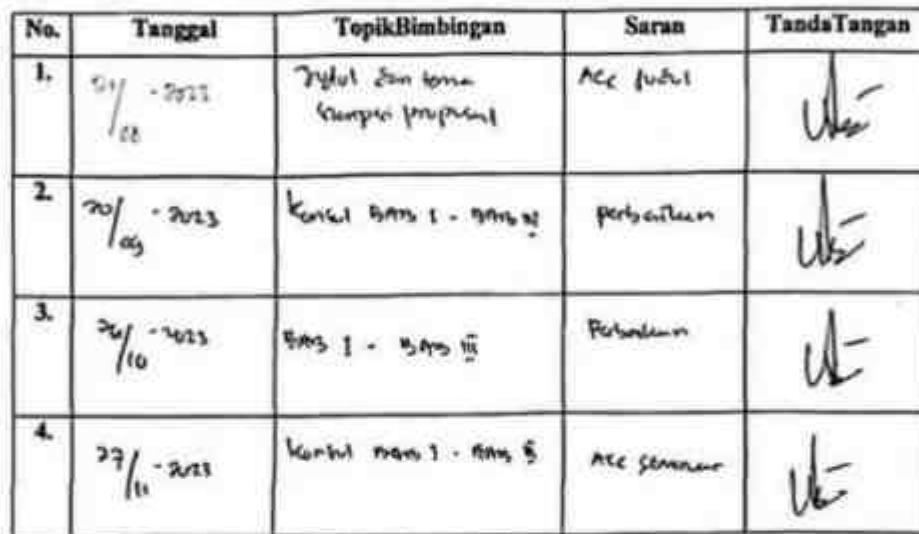 No. Tanggal TopikBimbingan Saran TandaTangan
1. /08 - 2023 Judul dan tema ACC Judul
proposal
2. 20/09 - 2023 Konsul BAB I - BAB perbaikan
3. 26/10 - 2023 BAB I - BAB III Perbaikan
4. 27/11 - 2023 Konsul BAB I - BAB ACC seminar